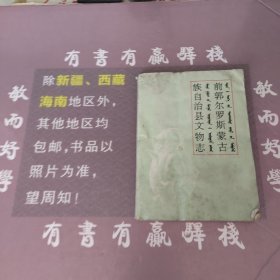 有書有贏驛棧
敏而好學
除新疆、西藏
海南地区外，
其他地区均
包邮，书品以
照片为准，
望周知！
前郭尔罗斯蒙古
族自治县文物志
敏而好學
有書有贏驛棧